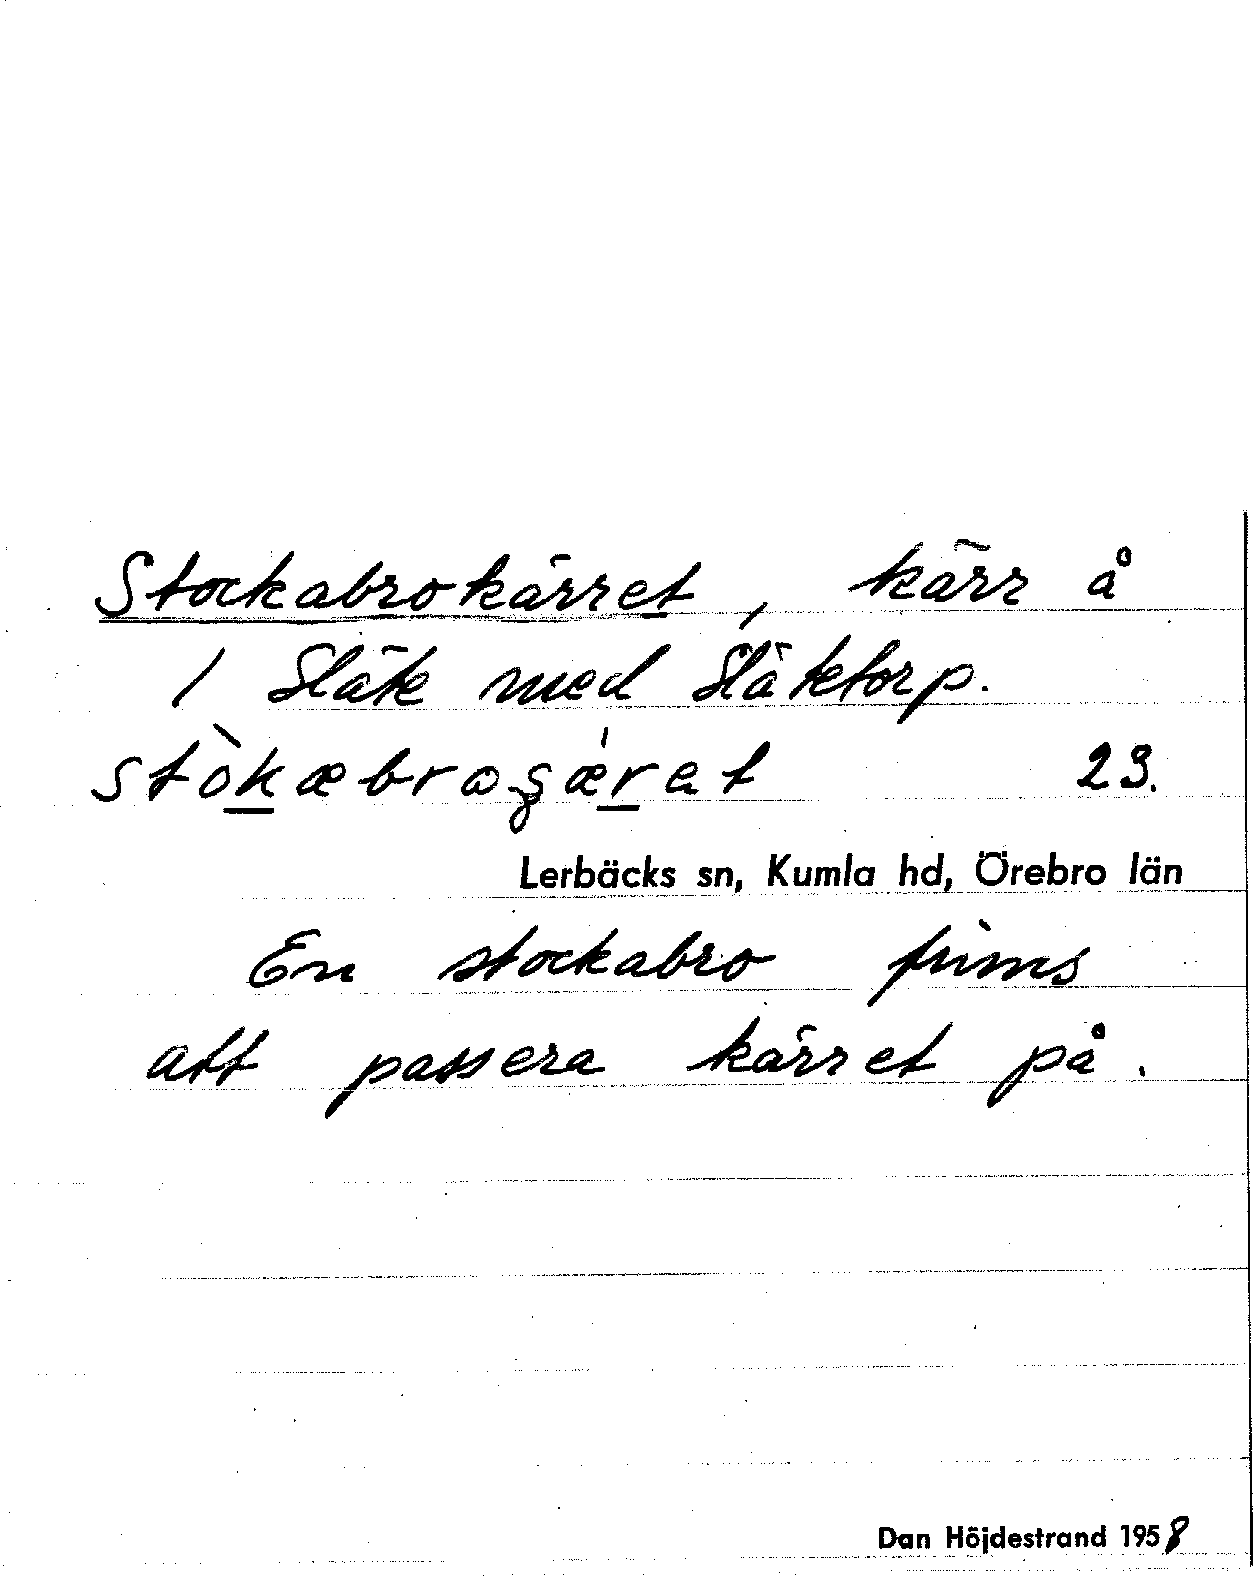 Stockabrokärret, kärr å
1 Släte med Slätetorp.
stòkæbroʂǽrət 23.
Lerbäcks sn, Kumla hd, Örebro län
En stockabro finns
att passera kärret på.
Dan Höjdestrand 1958